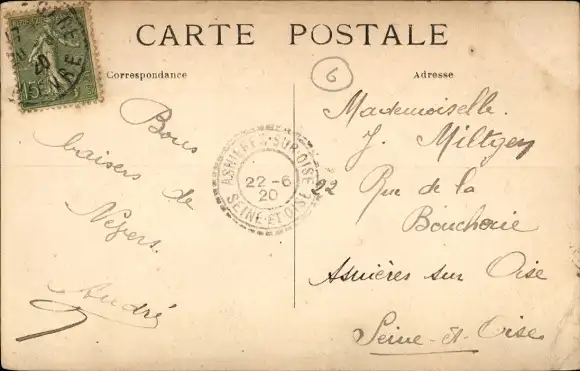 CARTE POSTALE
Correspondance
Adresse
6
15c
20
Bons
baisers de
André
ASNIÈRES-SUR-OISE
22-6
20
SEINE-ET-OISE
Mademoiselle
J. Miltgen
22 Rue de la
Boucherie
Asnières sur Oise
Seine-et-Oise